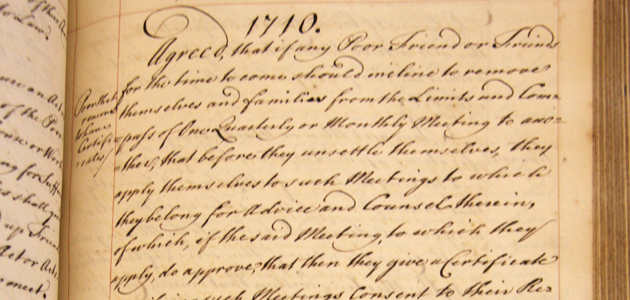 1710.
Agreed, that if any Poor Friend or Friends
for the time to come should incline to remove
themselves and families from the Limits and Com=
=pass of One Quarterly or Monthly Meeting to ano=
=ther, that before they unsettle themselves, they
apply themselves to such Meetings to which
they belong for Advice and Counsel therein,
of which, if the said Meeting, to which they
apply, do approve, that then they give a Certificate
such Meetings Consent to their Re=
Poor that
remove
to have
Certifi=
=cates
to Law